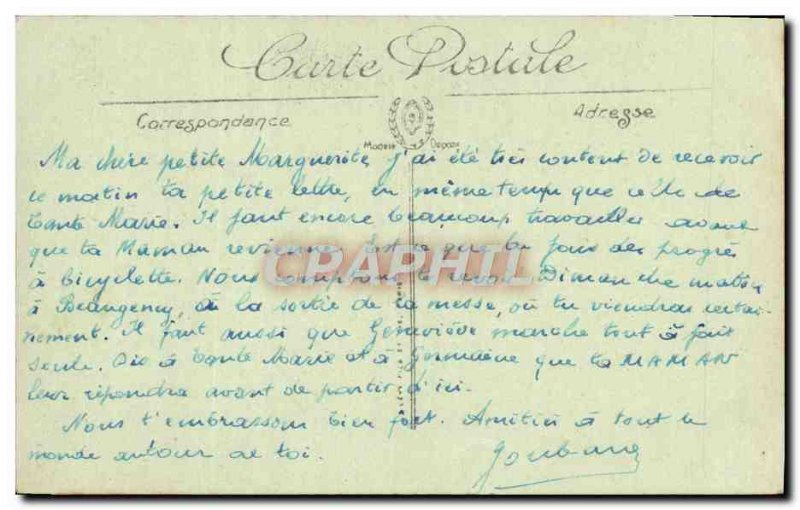 Carte Postale
Correspondance
Adresse
Modèle Déposé
Ma chère petite Marguerite, j'ai été très content de recevoir
ce matin ta petite lettre, en même temps que celle de
tante Marie. Il faut encore beaucoup travailler avant
que ta Maman revienne. Est-ce que tu fais des progrès
à bicyclette. Nous comptons te revoir Dimanche matin
à Beaugency, à la sortie de la messe, où tu viendras certai-
nement. Il faut aussi que Geneviève marche tout à fait
seule. Dis à tante Marie et à Germaine que ta MAMAN
leur répondra avant de partir d'ici.
Nous t'embrassons bien fort. Amitiés à tout le
monde autour de toi.
CRAPHIL